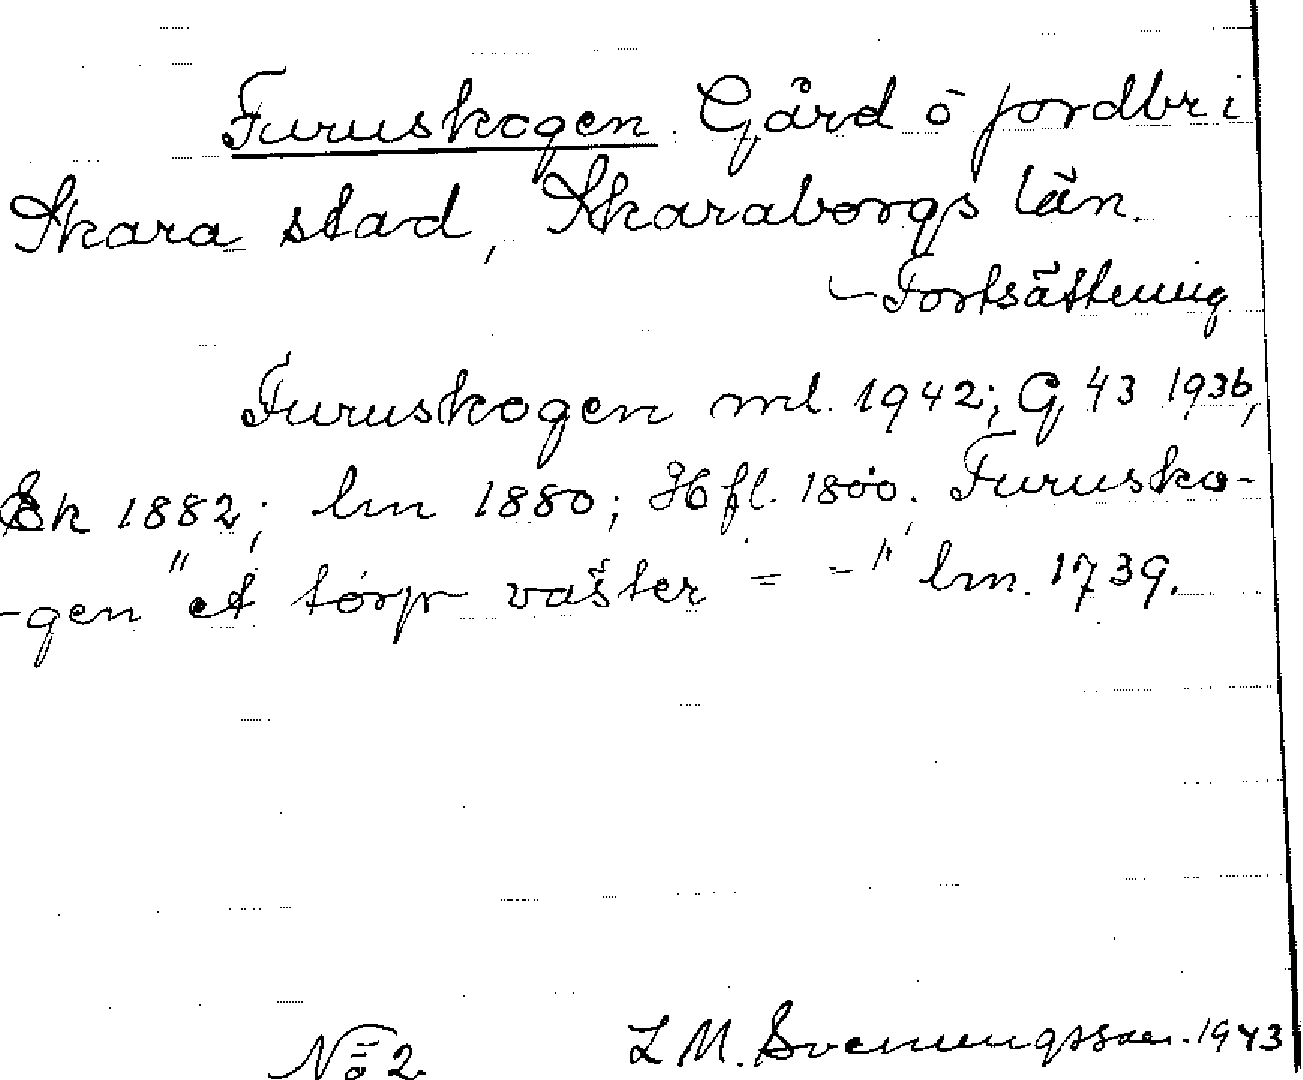 Furuskogen. Gård ō jordbr i
Skara stad, Skaraborgs län.
– Fortsättning
Furuskogen ml. 1942; G 43 1936,
Ek 1882; lm 1880; Hfl. 1800. Furusko-
-gen " et torp väster = - " lm. 1739.
No 2. L M. Svenungsson. 1943